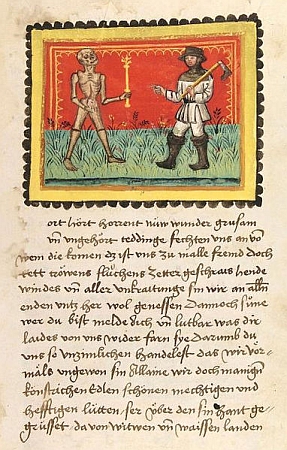 ort hört horrent nüw wunder grusam
vn̄ ungehört teddinge fechten uns an vō
wem die komen dz ist uns zu malle fremd Doch
trowens flůchens Zetter geschrais hende
windes vn̄ aller
enden untz her wol genossen Dannoch sune
wer du bist melde dich vn̄ lutbar was dir
laides von uns wider farn sye Darumb du
uns so unzimlichen handelest das wir vor
måls ungewon sin Allaine wir doch manigen
Edlen schönen mechtigen und
hefftigen lütten ser über den
graset da von witwen vn̄ waissen landen